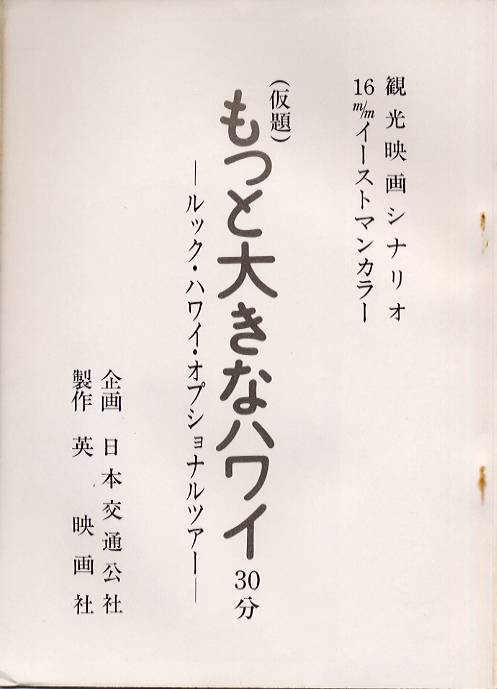 観光映画シナリオ
16m/mイーストマンカラー
(仮題)
もっと大きなハワイ 30分
―ルック・ハワイ・オプショナルツアー―
企画 日本交通公社
製作 英 映画社